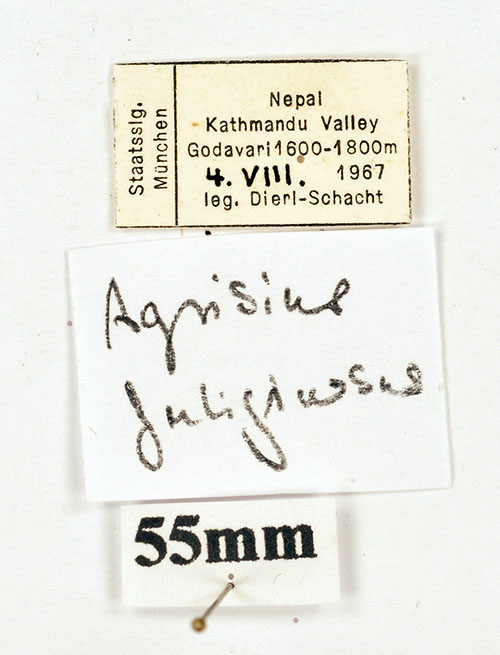 Staatsslg.
München
Nepal
Kathmandu Valley
Godavari 1600-1800m
4. VIII. 1967
leg. Dierl-Schacht
Agrisius
fuliginosus
55mm